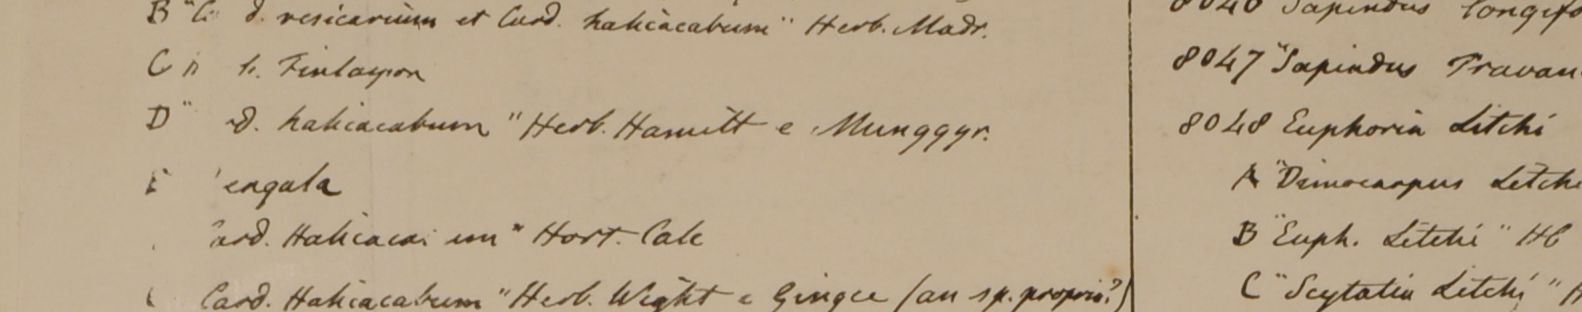 B "C d. vesicarium et Card. halicacabum" Herb. Madr.
C h. Finlayson
D" d. halicacabum" Herb. Hamilt e Munggyr.
E engala
ard. Halicaca um" Hort. Calc
Card. Halicacabum" Herb. Wight e Gingee (an sp. propria?)
8046 Sapindus longifo
8047 "Sapindus Travan
8048 Euphoria Litchi
A "Dimocarpus Litchi
B "Euph. Litchi" HC
C "Scytalia Litchi" H